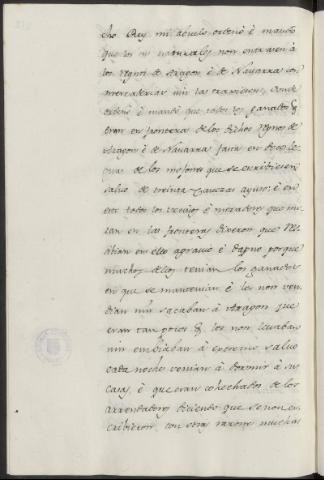 cho Rey mi abuelo ordenó é mandó
que los sus naturales non entraren á
los regnos de Aragon é de Navarra con
mercaderias nin las traxiesen, donde
ordenó é mandó que todos los ganados q̃
eran en frontera de los dichos regnos de
Aragon é de Navarra fasta en doce le-
guas de los mojones que se escribiesen
salvo de treinta cavezas ayuso: é en
esto todos los vecinos é moradores que mo-
ran en las fronteras dixeron que rese-
bian en ello agravio é dapno porque
muchos dellos tenian los ganados
en que se mantenian é los non ven-
dian nin sacaban á Aragon que
eran tan pocos q̃ los non levaban
nin embiaban á extremo salvo
cada noche venian á dormir á sus
casas, é que eran cohechados de los
arrendadores diciendo que se non es-
cribieron, con otras razones muchas